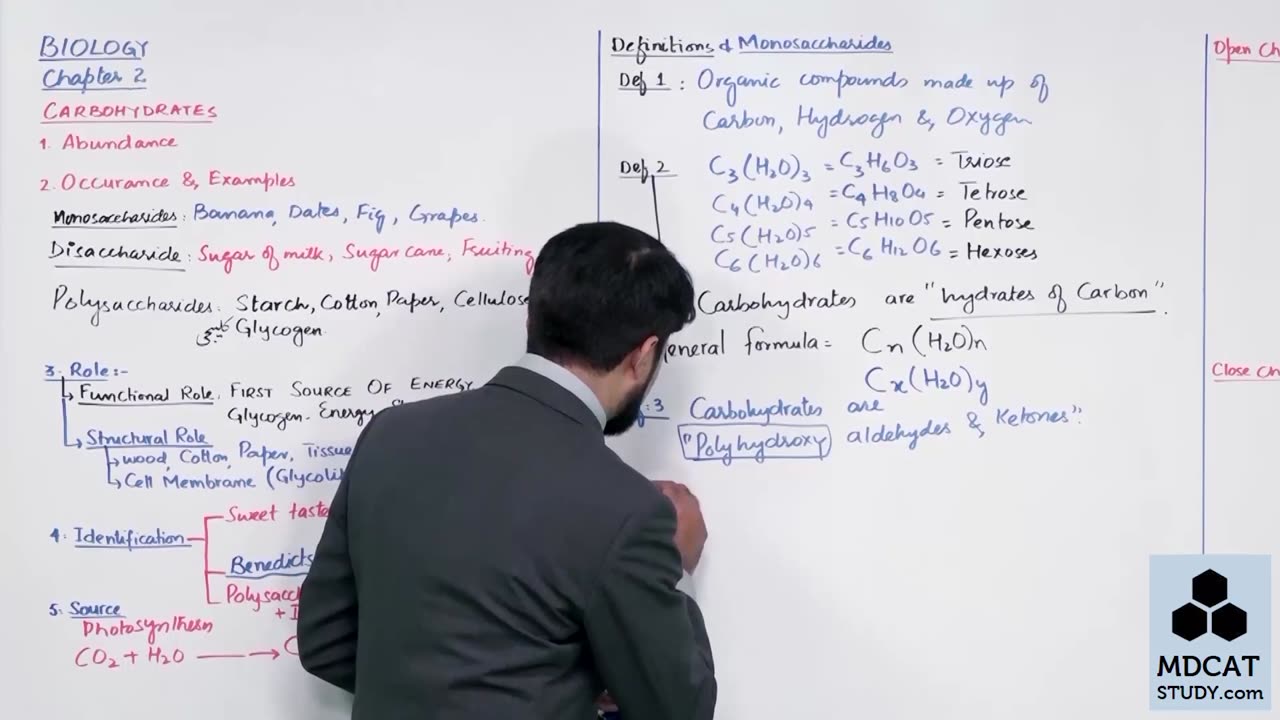 BIOLOGY
Chapter 2
CARBOHYDRATES
1. Abundance
2. Occurance &, Examples
Monosaccharides: Banana, Dates, Fig, Grapes.
Disaccharide: Sugar of milk, Sugar cane, Fruiting
Polysaccharides: Starch, Cotton, Paper, Cellulose
Glycogen
3. Role:-
Functional Role. FIRST SOURCE OF ENERGY
Glycogen- Energy
Structural Role
wood, Cotton, Paper, Tissue
Cell Membrane (Glycoli
4. Identification
Sweet taste
Benedicts
Polysacch
+ I
5. Source
Photosynthesis
CO2 + H2O → C
Definitions & Monosaccharides
Def 1: Organic compounds made up of
Carbon, Hydrogen &, Oxygen
Def. 2 C3(H2O)3 = C3H6O3 = Triose
C4(H2O)4 = C4H8O4 = Tetrose
C5(H2O)5 = C5H10O5 = Pentose
C6(H2O)6 = C6H12O6 = Hexoses
Carbohydrates are "hydrates of Carbon".
eneral formula= Cn(H2O)n
Cx(H2O)y
:3 Carbohydrates are
"Polyhydroxy aldehydes &, Ketones".
Open Ch
Close Ch
MDCAT
STUDY.com